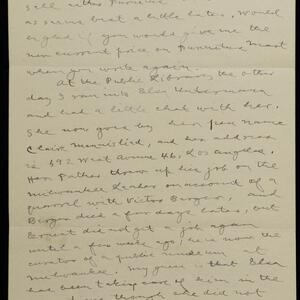 sell either Furniture
as seems best a little later. Would
be glad if you would give me the
new current price on Furniture Mart
when you write again.
At the Public Library the other
day I ran into Elsa
and had a little chat with her.
She now goes by her pen name
Claire and her address
is 592 West Avenue 46, Los Angeles.
Her Father threw up his job on the
Milwaukee Leader on account of a
quarrel with Victor Berger, and
Berger died a few days later, but
Ernest did not get a job again
until a few weeks ago, he is now the
curator of a public museum at
Milwaukee. My guess is that Elsa
has been taking care of him in the
though she did not